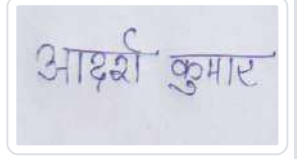 आदर्श कुमार